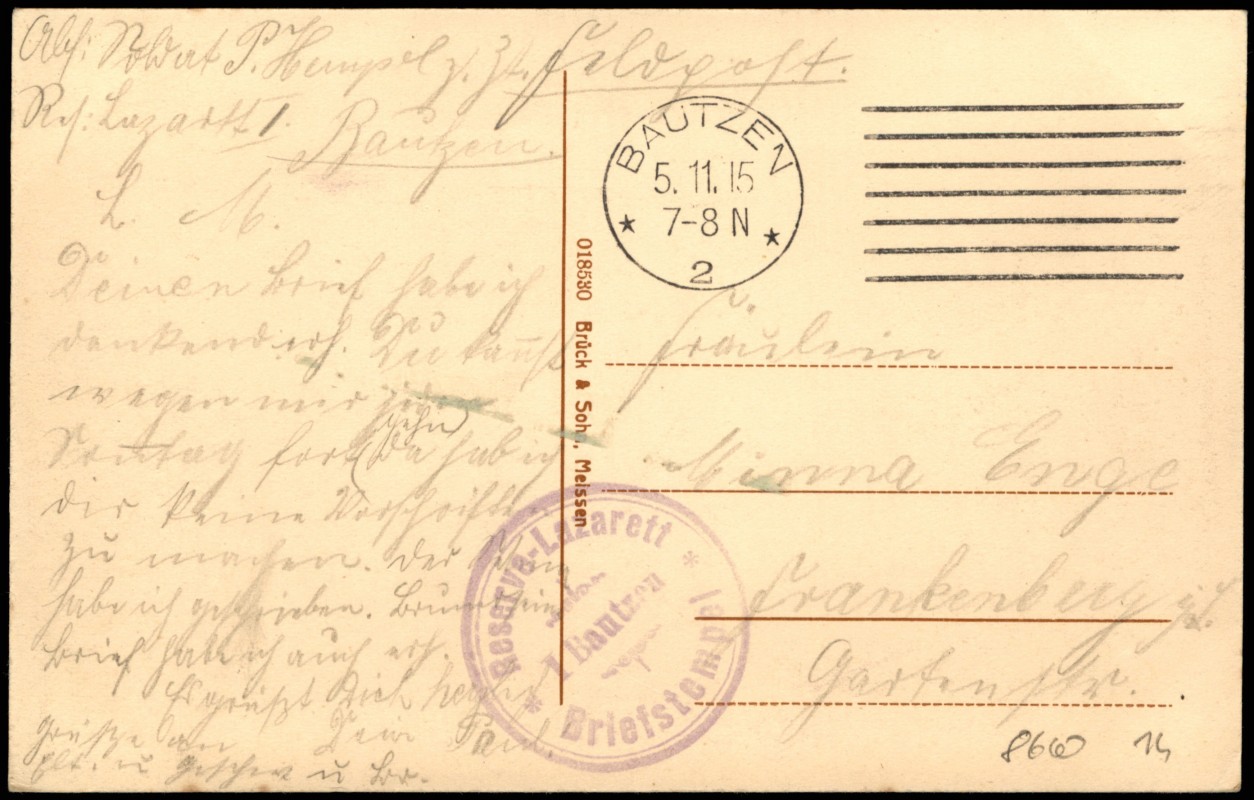 Abs: Soldat P. Hempel z. Zt.
Res: Lazarett I.
Bautzen.
L. M.
Deinen Brief habe ich
dankend erh. Du kannst
wegen mir jeden
Sonntag fort (gehn) da hab ich
dir keine Vorschriften
zu machen. Der
habe ich geschrieben.
Brief habe ich auch erh.
Es grüßt Dich herzl.
Dein Paul.
Grüße an
Elt. u Geschw u
Feldpost.
BAUTZEN
5. 11. 15
7-8 N
★ ★
2
018530 Brück & Sohn, Meissen
Fräulein
Minna Enge
Frankenberg i/S.
Gartenstr.
Reserve-Lazarett
1 Bautzen
* Briefstempel *
8660 14